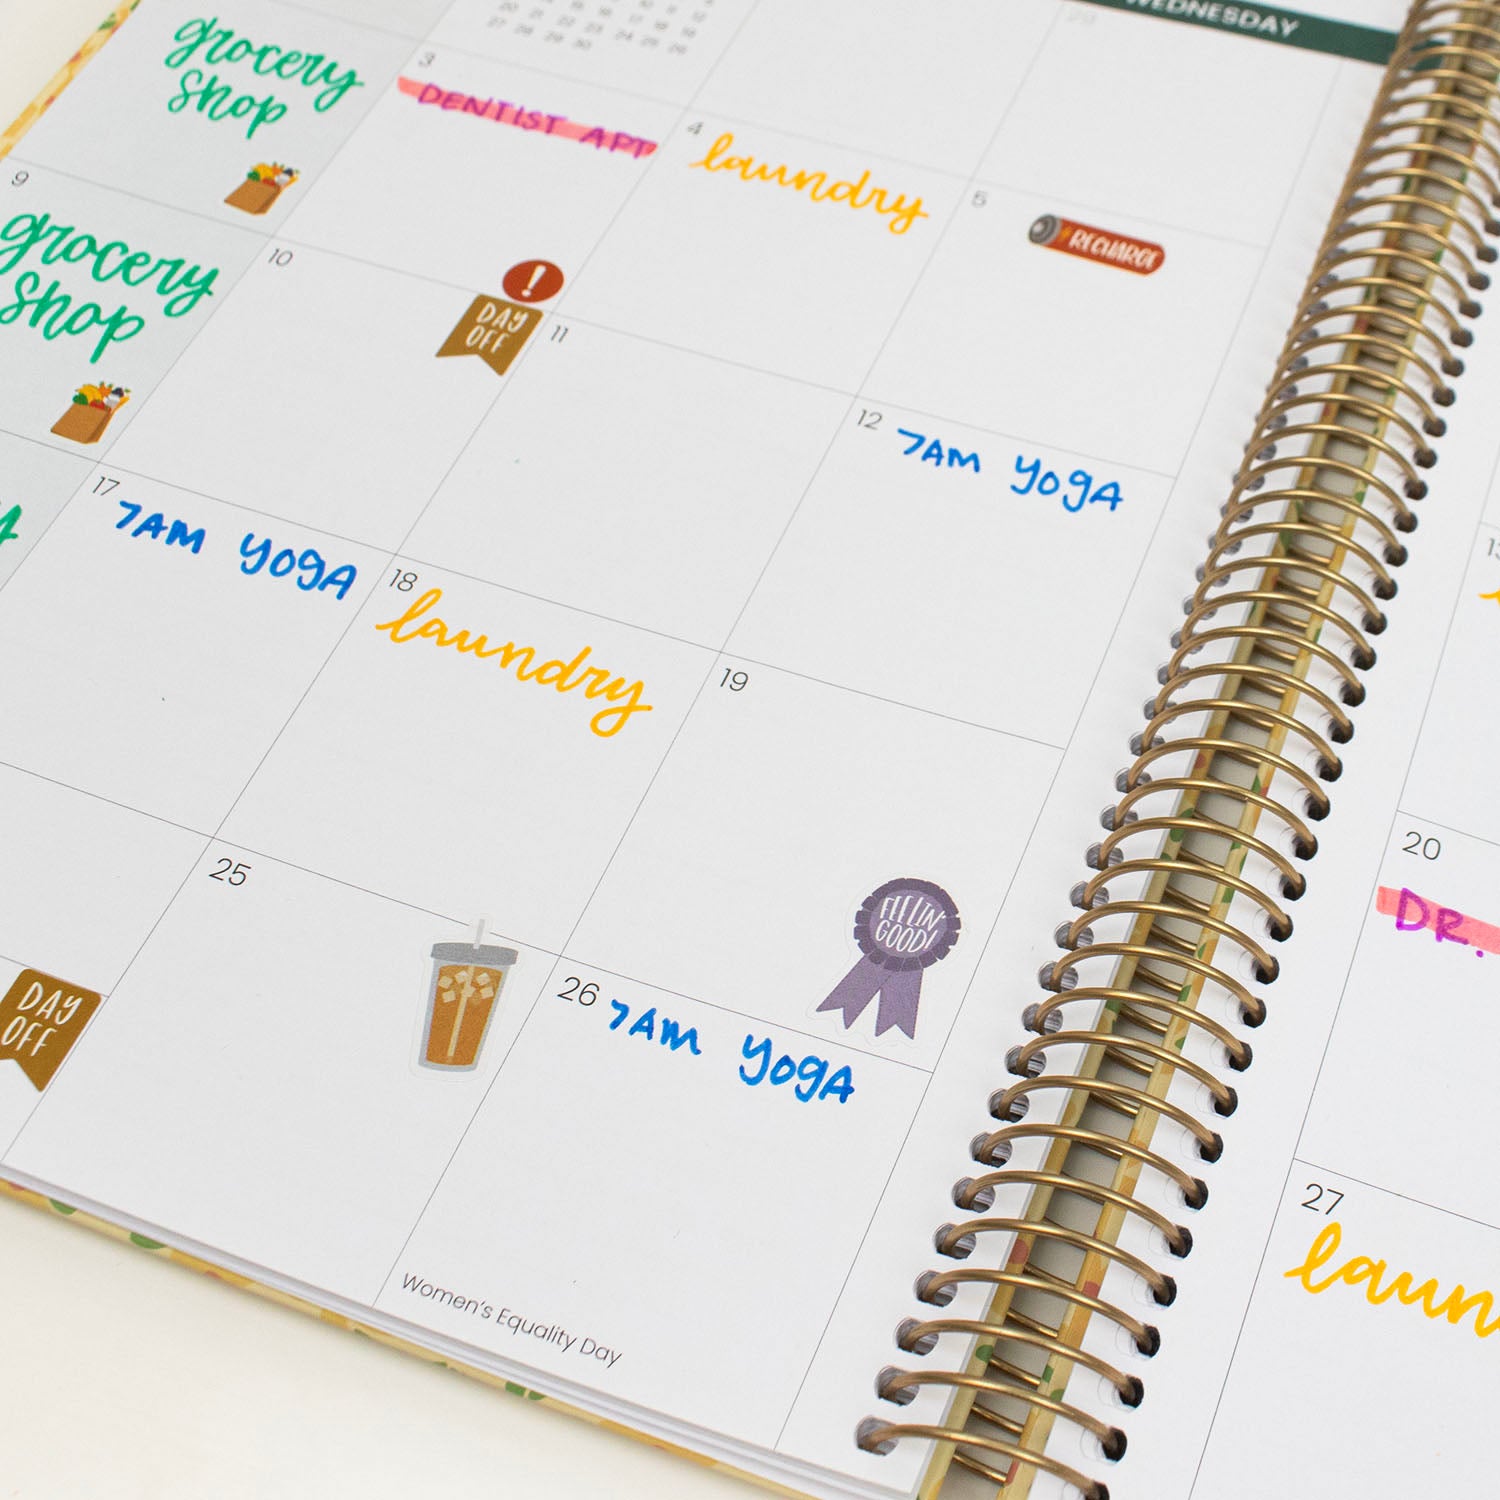 WEDNESDAY
29
grocery
shop
3
DENTIST APT
4
laundry
5
RECHARGE
9
grocery
shop
10
!
DAY
OFF
11
12
7AM YOGA
13
17
7AM YOGA
18
laundry
19
FEELIN'
GOOD!
20
DR.
DAY
OFF
25
26
7AM YOGA
Women's Equality Day
27
laun